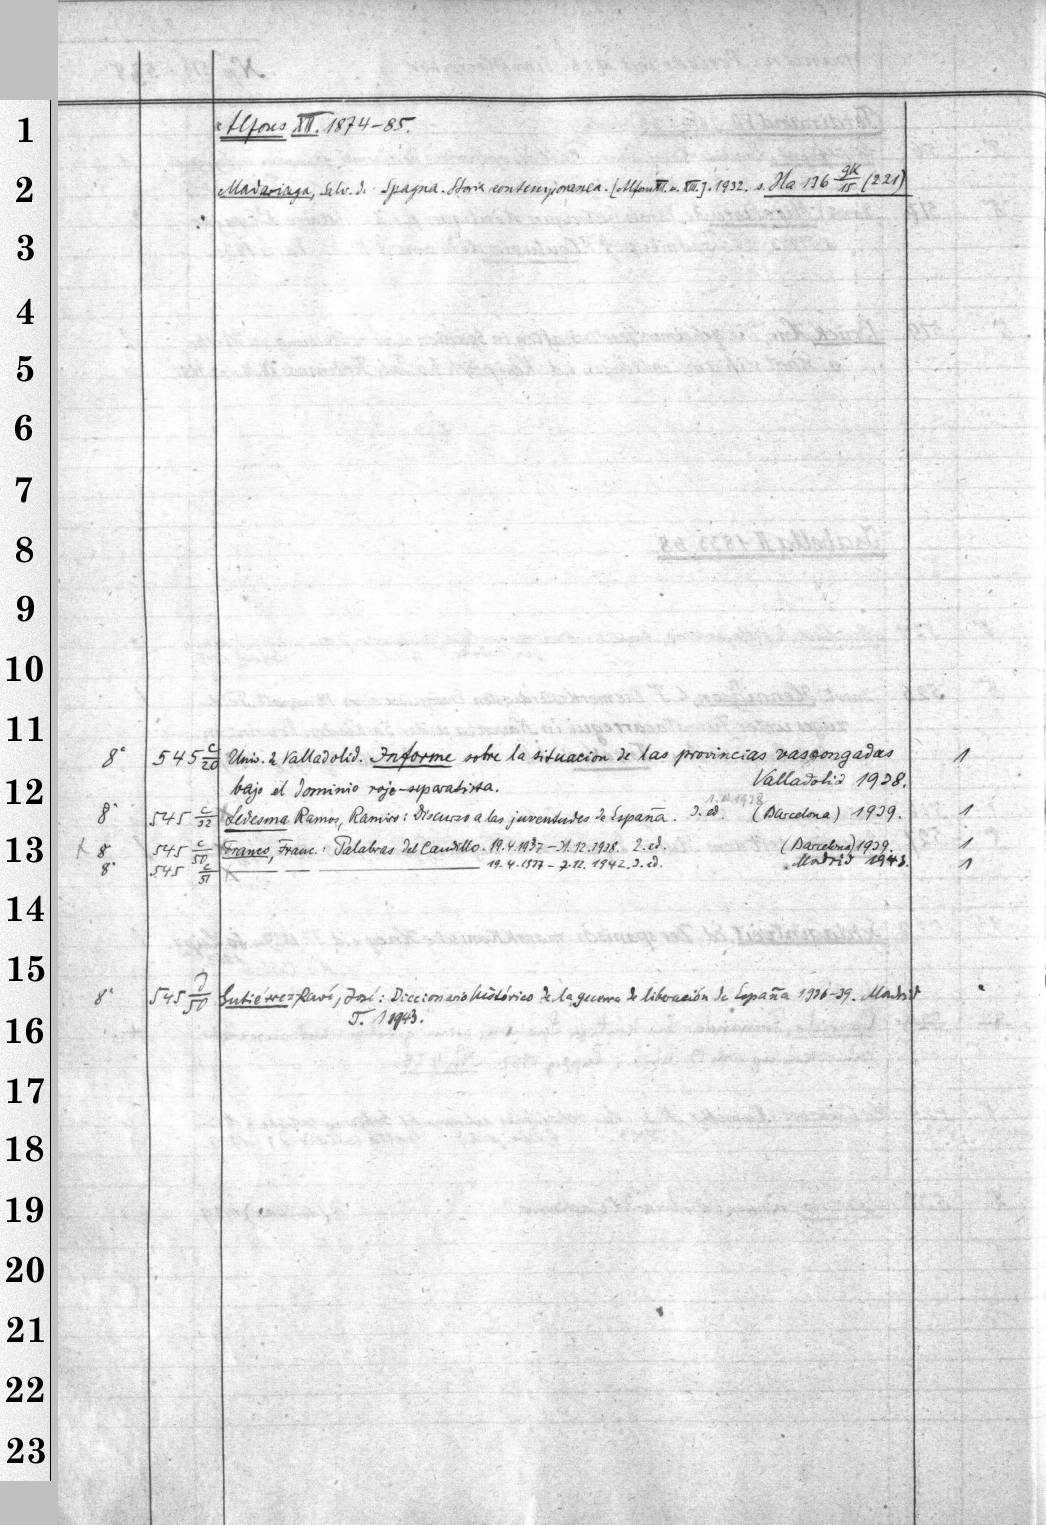 1
Alfons XII. 1874-85.
2
Madariaga, Salv. d.: Spagna. Storia contemporanea. [Alfons XII. u. XIII.]. 1932. s. Ha 136 gk/15 (221)
3
4
5
6
7
8
9
10
11
8° 545 c/20 Univ. d. Valladolid. Informe sobre la situacion de las provincias vascongadas 1
12
bajo el dominio rojo-separatista. Valladolid 1938.
8° 545 c/32 Ledesma Ramos, Ramiro: Discurso a las juventudes de España. 3. ed. (Barcelona) 1939. 1
13
8° 545 c/50 Franco, Franc.: Palabras del Caudillo. 19.4.1937-31.12.1938. 2. ed. (Barcelona) 1939. 1
8° 545 c/51 19.4.1937-7.12.1942. 3. ed. Madrid 1943. 1
14
15
8° 545 /50 Gutiérrez-Ravé, José: Diccionario histórico de la guerra de liberación de España 1936-39. Madrid
16
T. 1 1943.
17
18
19
20
21
22
23